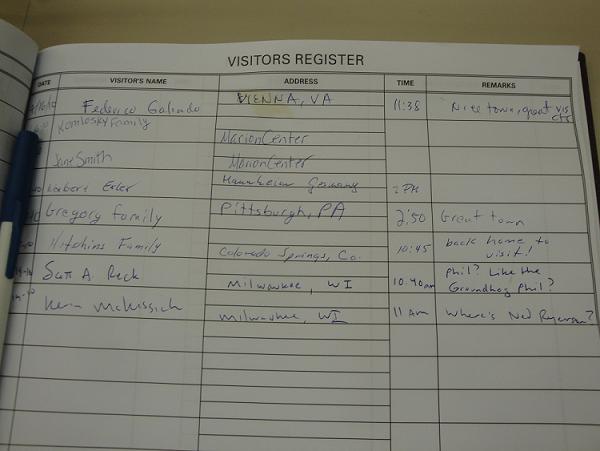 VISITORS REGISTER
DATE VISITOR'S NAME ADDRESS TIME REMARKS
Federico Galindo VIENNA, VA 11:38 Nice town, great vis ctr
Family MarionCenter
Jane Smith MarionCenter
Germany 2 PM
Gregory Family Pittsburgh, PA 2:50 Great town
Hitchins Family Colorado Springs, Co. 10:45 back home to visit!
Scott A. Reck Milwaukee, WI 10:40am Phil? Like the Groundhog Phil?
Milwaukee, WI 11 Am Where's Ned Ryerson?